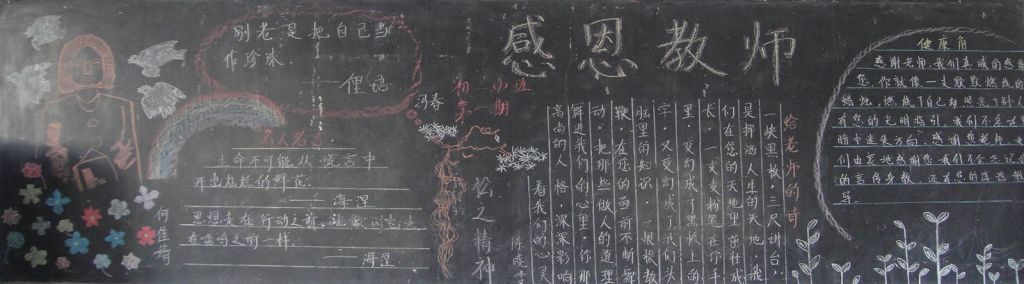 感恩教师
别老是把自己当
作珍珠
——俚语
名人名言
生命不可能从谎言中
开出灿烂的鲜花。
——海涅
思想走在行动之前,就像闪电走
在雷鸣之前一样。
——海涅
何佳珂
冯春
初一小班
第一期
松之精神
给老师的诗
一块黑板,三尺讲台,
是挥洒人生的天地,我
们在您的天地里茁壮成
长,一支支粉笔在你手
里,又变幻成了黑板上的
字,又变幻成了我们头
脑里的知识,一根根教
鞭,在您的面前不断舞
动,把那些做人的道理
舞进我们的心里,你那
高尚的人格,深深影响
着我们的心灵
陈晓
健康角
感谢老师,我们真诚的感谢
您,你就像一支默默燃烧的
蜡烛,燃烧了自己却照亮了别人
有您的光明指引,我们不会在黑
暗中迷失方向。感谢您老师,我
们由衷地感谢您,我们不会忘记您
的言传身教,
导。